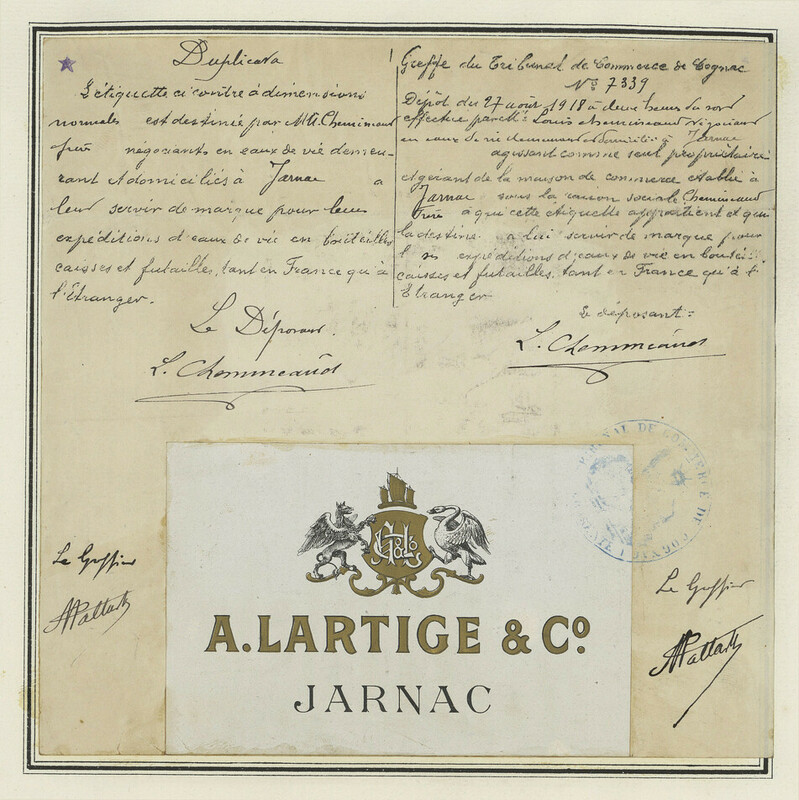 Duplicata
L'étiquette ci contre à dimensions
normales est destinée par MM. Chemineaud
frères négociants en eaux de vie demeu-
rant et domiciliés à Jarnac a
leur servir de marque pour leurs
expéditions d'eaux de vie en bouteilles
caisses et futailles, tant en France qu'à
l'étranger.
Le Déposant.
L. Chemineaud
Greffe du Tribunal de Commerce de Cognac
N° 7339
Dépôt du 27 août 1918 à deux heures du soir
effectué par Louis Chemineaud négociant
en eaux de vie demeurant et domicilié à Jarnac
agissant comme seul propriétaire
et gérant de la maison de commerce établie à
Jarnac sous la raison sociale Chemineaud
frères à qui cette étiquette appartient et qui
la destine a lui servir de marque pour
ses expéditions d'eaux de vie en bouteilles
caisses et futailles, tant en France qu'à l'
Etranger
Le déposant:
L. Chemineaud
TRIBUNAL DE COMMERCE DE COGNAC
Le Greffier
Le Greffier
A. LARTIGE & Cº
JARNAC